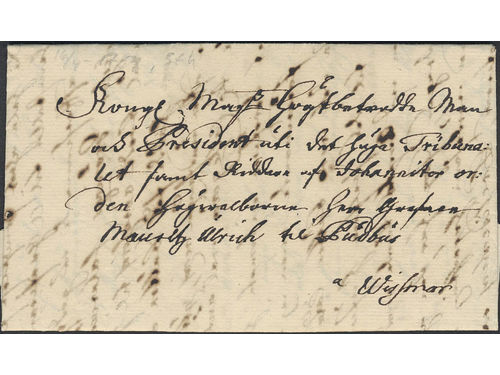 Kongl. Mayᵗˢ Högtbetrodde Man
och President uti det höga Tribuna:
let samt Riddare af Johanniter or:
den Högwälborne Herr Grefwe
Mauritz Ulrich til Pudbus
a Wissmar